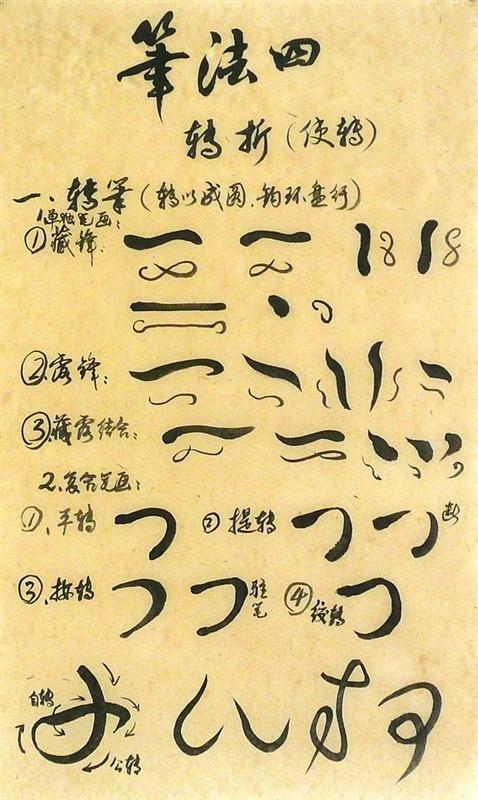 筆法四
转折(使转)
一、转笔(转以成圆、钩环盘行)
1.单独笔画:
①藏锋:
②露锋:
③藏露结合:
2.复合笔画:
①、平转 ②提转 断
③、按转 驻笔 ④绞转
自转
公转